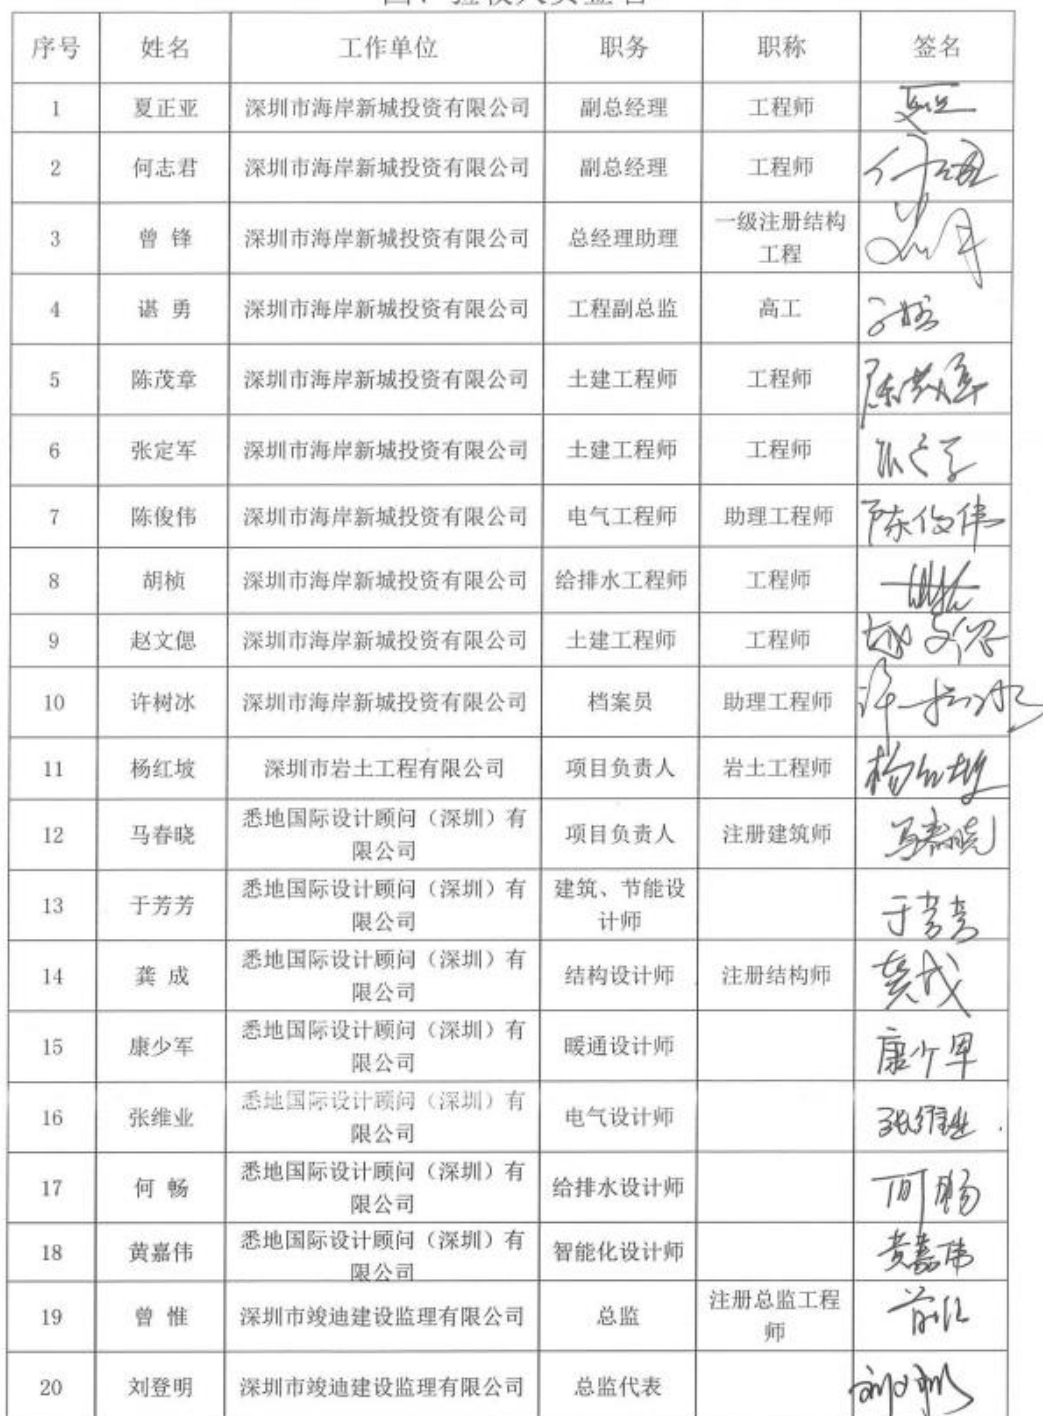 序号 姓名 工作单位 职务 职称 签名
1 夏正亚 深圳市海岸新城投资有限公司 副总经理 工程师
2 何志君 深圳市海岸新城投资有限公司 副总经理 工程师
3 曾 锋 深圳市海岸新城投资有限公司 总经理助理 一级注册结构
工程
4 谌 勇 深圳市海岸新城投资有限公司 工程副总监 高工
5 陈茂章 深圳市海岸新城投资有限公司 土建工程师 工程师 陈茂章
6 张定军 深圳市海岸新城投资有限公司 土建工程师 工程师 张定军
7 陈俊伟 深圳市海岸新城投资有限公司 电气工程师 助理工程师 陈俊伟
8 胡桢 深圳市海岸新城投资有限公司 给排水工程师 工程师
9 赵文偲 深圳市海岸新城投资有限公司 土建工程师 工程师 赵文偲
10 许树冰 深圳市海岸新城投资有限公司 档案员 助理工程师 许树冰
11 杨红坡 深圳市岩土工程有限公司 项目负责人 岩土工程师 杨红坡
12 马春晓 悉地国际设计顾问（深圳）有
限公司 项目负责人 注册建筑师 马春晓
13 于芳芳 悉地国际设计顾问（深圳）有
限公司 建筑、节能设
计师 于芳芳
14 龚 成 悉地国际设计顾问（深圳）有
限公司 结构设计师 注册结构师 龚成
15 康少军 悉地国际设计顾问（深圳）有
限公司 暖通设计师 康少军
16 张维业 悉地国际设计顾问（深圳）有
限公司 电气设计师 张维业
17 何 畅 悉地国际设计顾问（深圳）有
限公司 给排水设计师 何畅
18 黄嘉伟 悉地国际设计顾问（深圳）有
限公司 智能化设计师 黄嘉伟
19 曾 惟 深圳市竣迪建设监理有限公司 总监 注册总监工程
师
20 刘登明 深圳市竣迪建设监理有限公司 总监代表